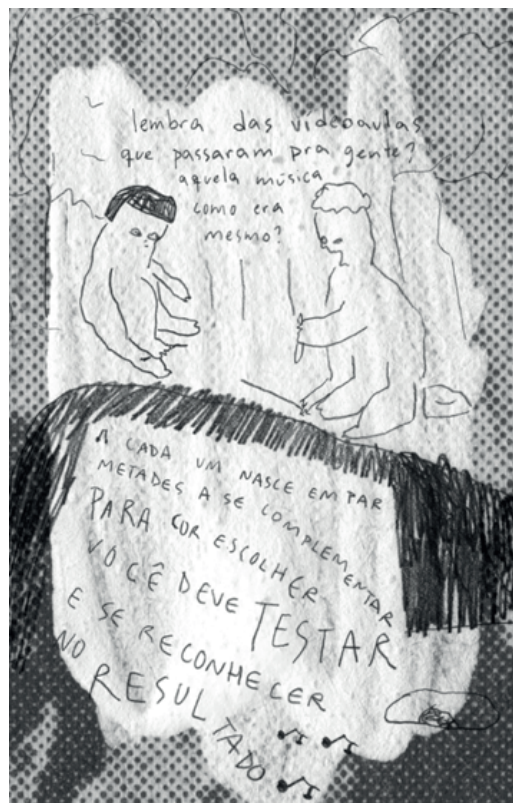 lembra das videoaulas
que passaram pra gente?
aquela música
como era
mesmo?
♫ CADA UM NASCE EM PAR
METADES A SE COMPLEMENTAR
PARA COR ESCOLHER
VOCÊ DEVE TESTAR
E SE RECONHECER
NO RESULTADO ♫ ♫ ♫